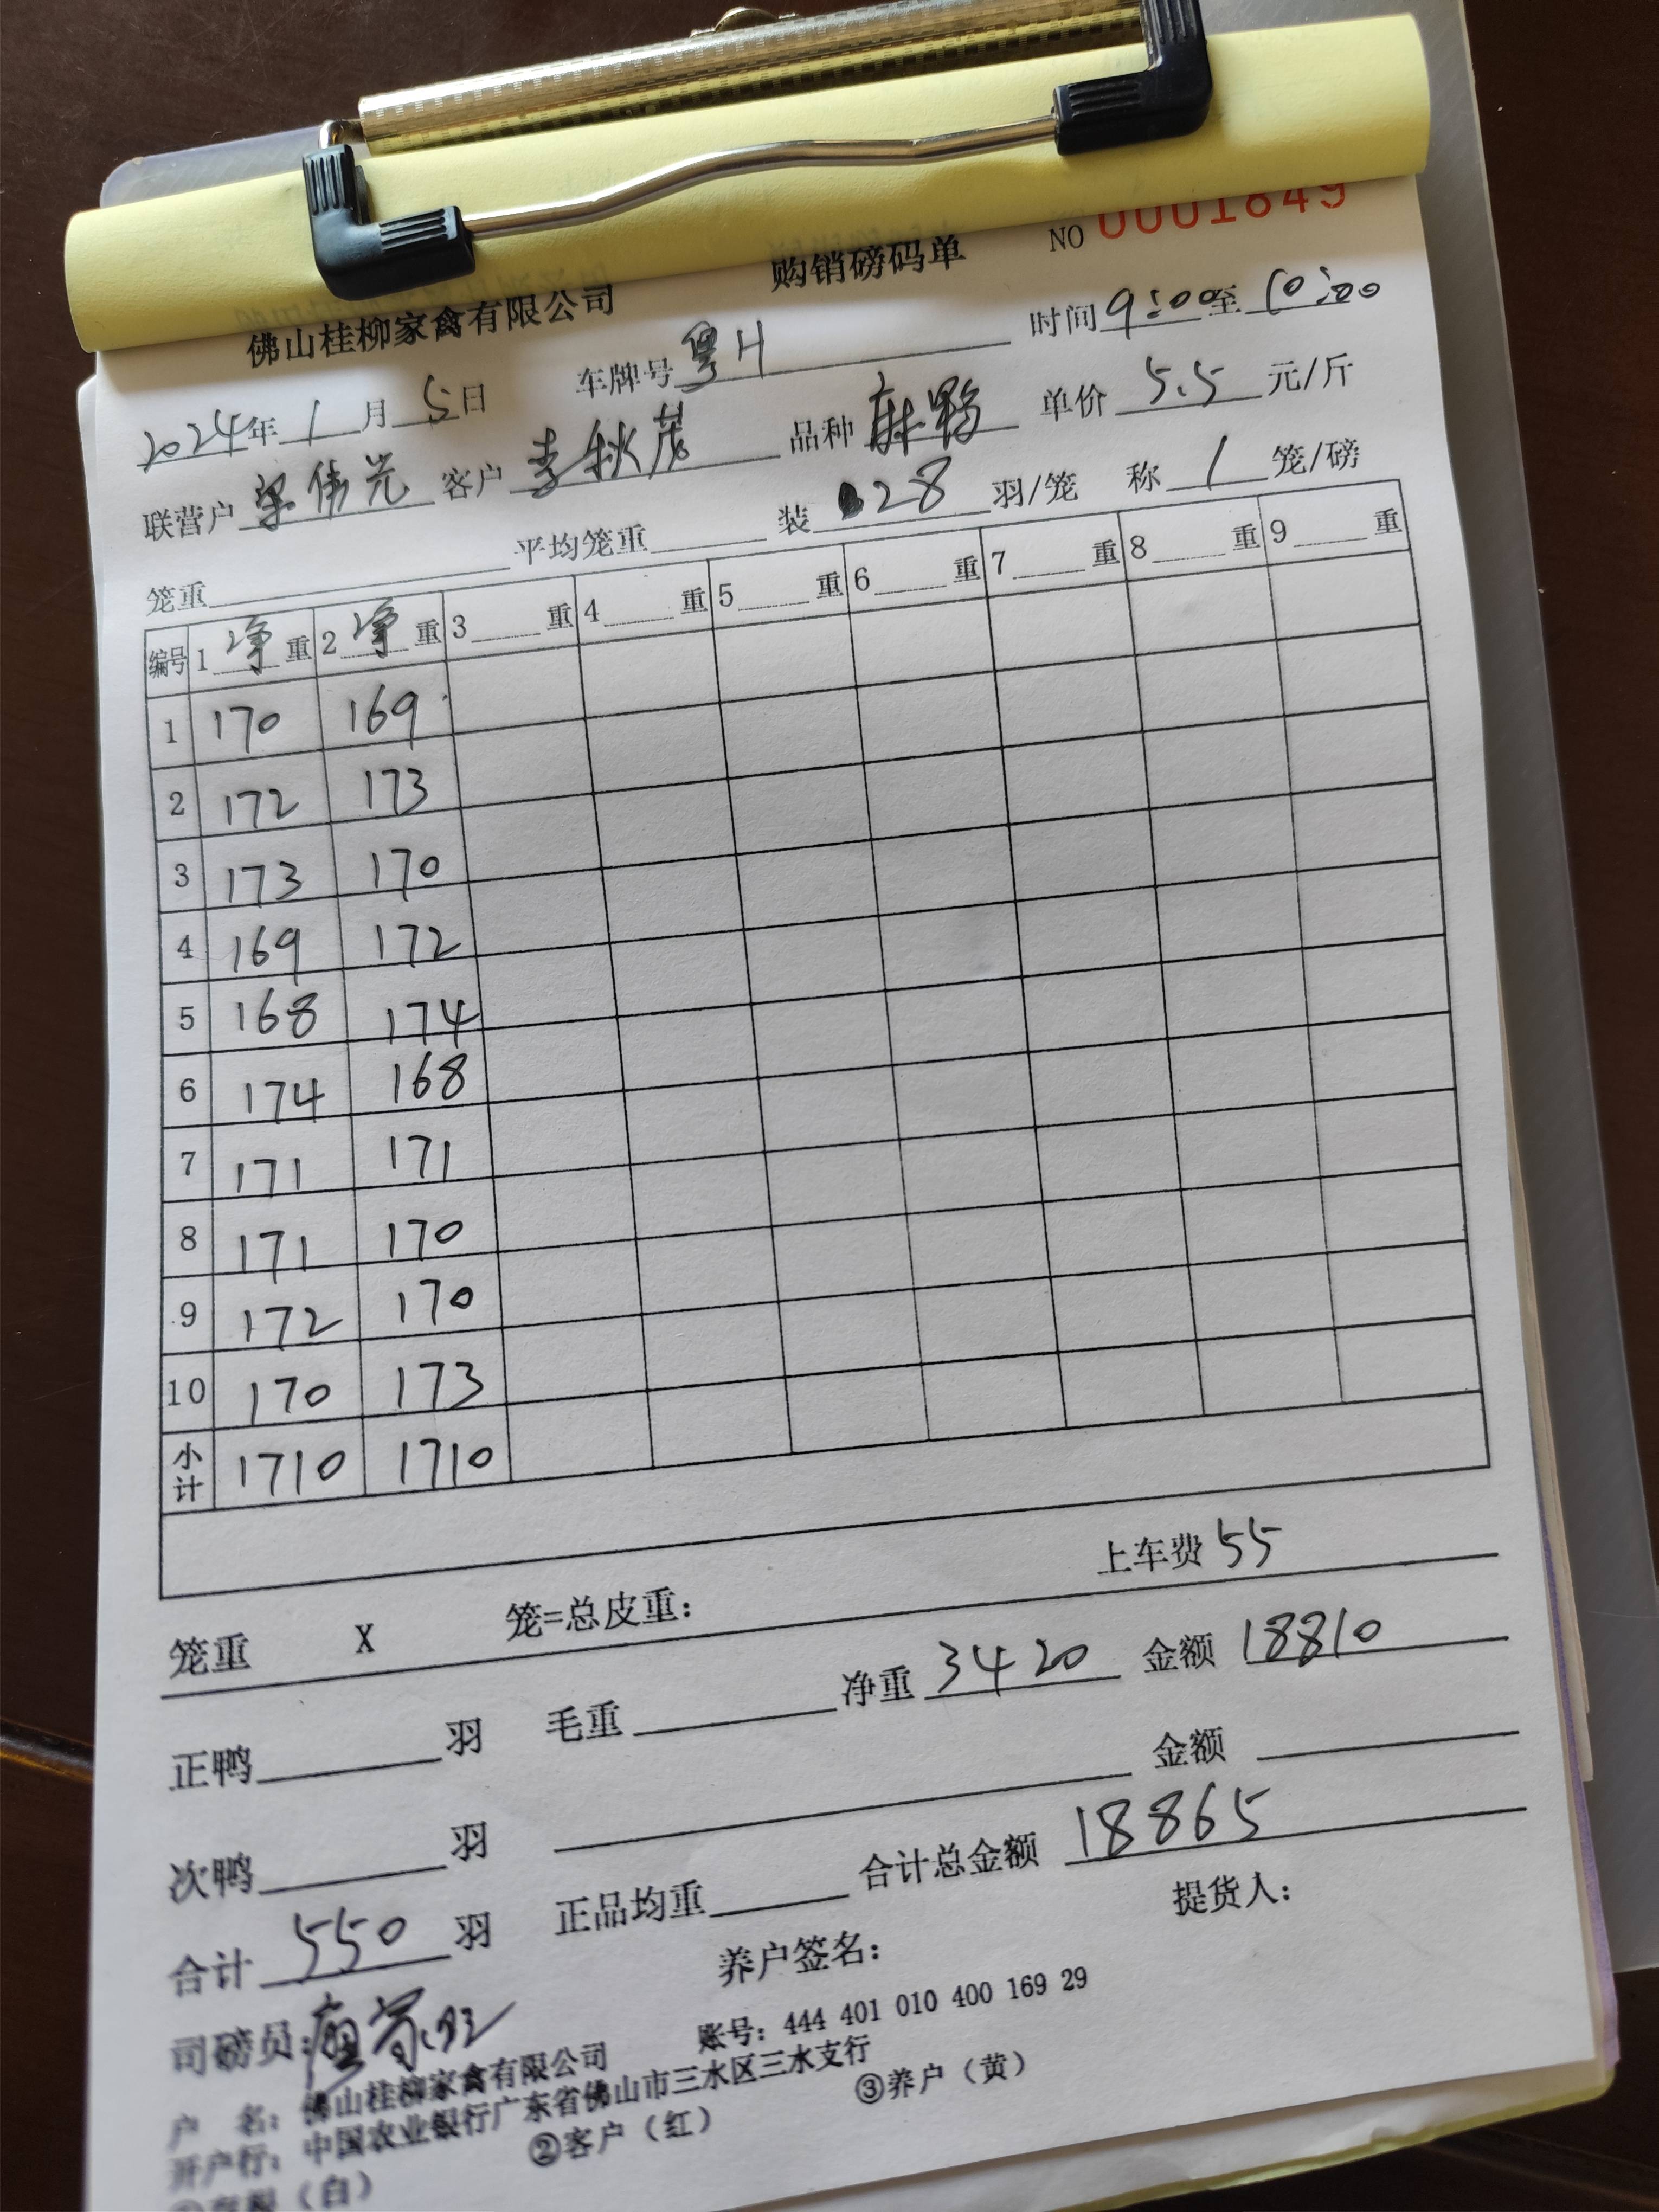 佛山桂柳家禽有限公司 购销磅码单 NO 0001849
2024年 1 月 5日 车牌号 粤H 时间 9:00 至 10:00
联营户 梁伟光 客户 李秋茂 品种 麻鸭 单价 5.5 元/斤
笼重 平均笼重 装 28 羽/笼 称 1 笼/磅
编号 1 净 重 2 净 重 3 重 4 重 5 重 6 重 7 重 8 重 9 重
1 170 169
2 172 173
3 173 170
4 169 172
5 168 174
6 174 168
7 171 171
8 171 170
9 172 170
10 170 173
小计 1710 1710
笼重 X 笼=总皮重: 上车费 55
正鸭 羽 毛重 净重 3420 金额 18810
次鸭 羽 金额
合计 550 羽 正品均重 合计总金额 18865
司磅员: 养户签名: 提货人:
户 名: 佛山桂柳家禽有限公司 账号: 444 401 010 400 169 29
开户行: 中国农业银行广东省佛山市三水区三水支行
(白) ②客户(红) ③养户(黄)